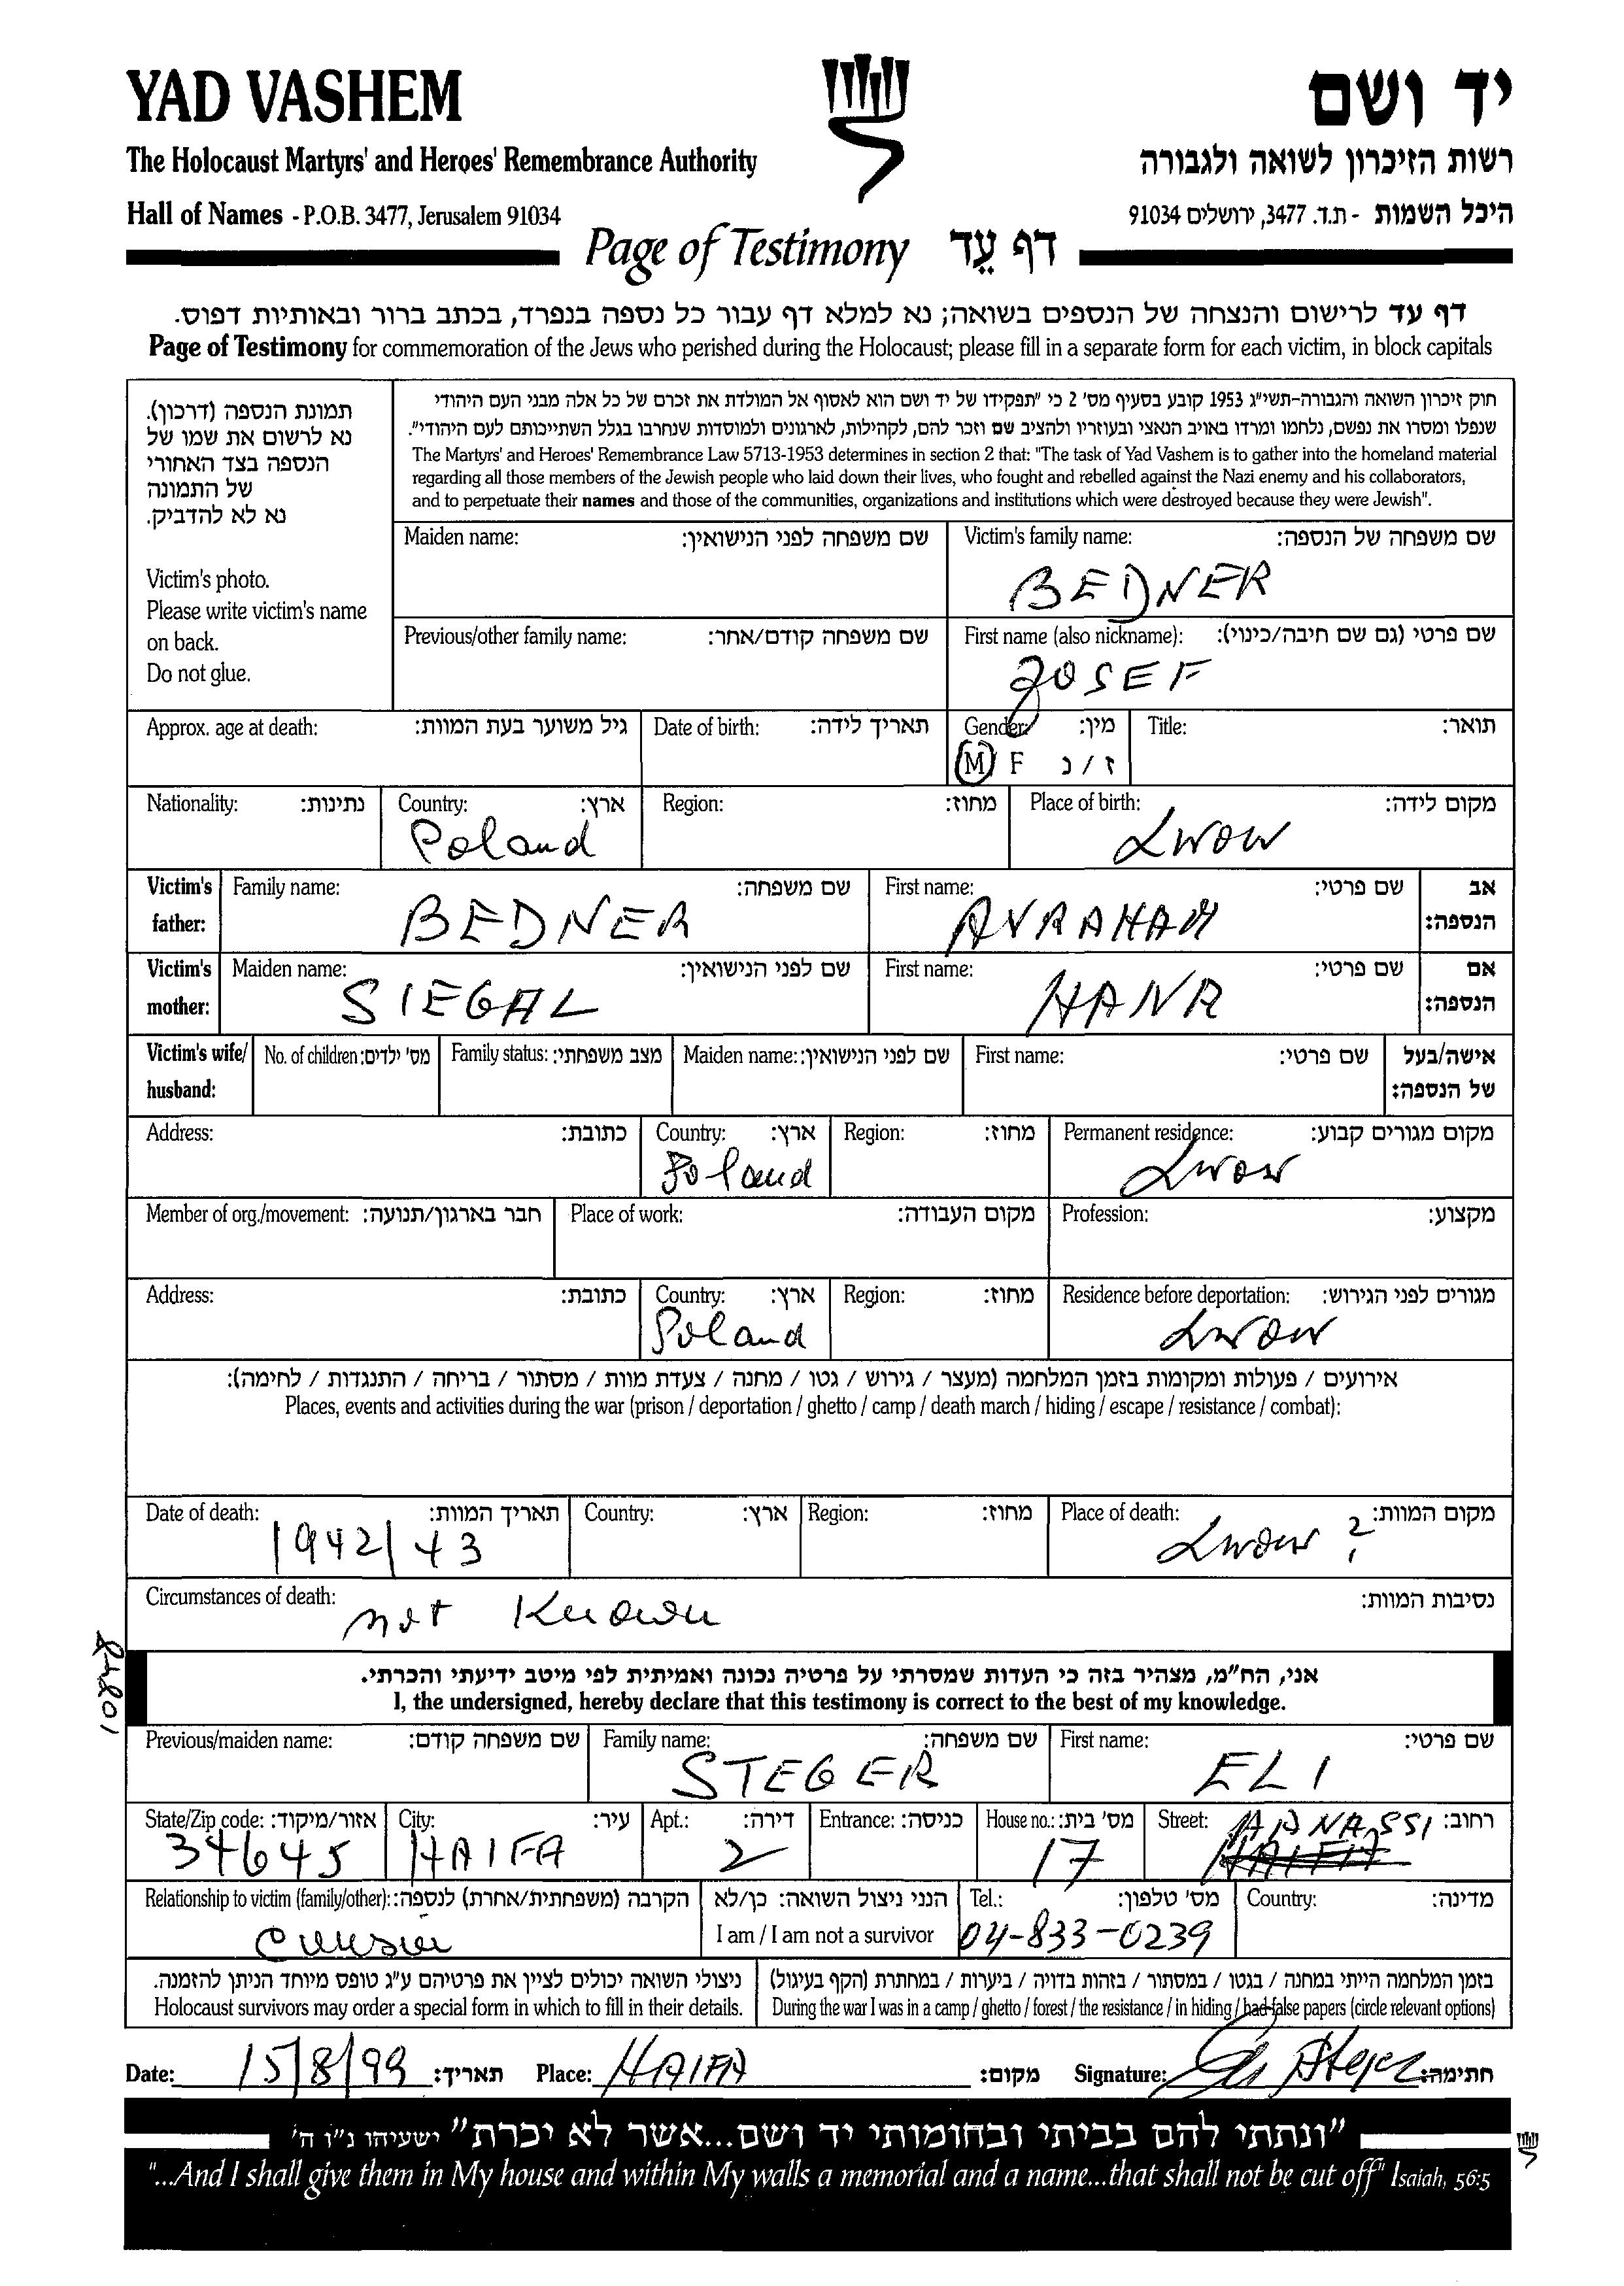 YAD VASHEM
יד ושם
The Holocaust Martyrs' and Heroes' Remembrance Authority
רשות הזיכרון לשואה ולגבורה
Hall of Names - P.O.B. 3477, Jerusalem 91034
היכל השמות - ת.ד. 3477, ירושלים 91034
Page of Testimony דף עֵד
דף עד לרישום והנצחה של הנספים בשואה; נא למלא דף עבור כל נספה בנפרד, בכתב ברור ובאותיות דפוס.
Page of Testimony for commemoration of the Jews who perished during the Holocaust; please fill in a separate form for each victim, in block capitals
תמונת הנספה (דרכון).
נא לרשום את שמו של
הנספה בצד האחורי
של התמונה
נא לא להדביק.
Victim's photo.
Please write victim's name
on back.
Do not glue.
חוק זיכרון השואה והגבורה-תשי"ג 1953 קובע בסעיף מס' 2 כי "תפקידו של יד ושם הוא לאסוף אל המולדת את זכרם של כל אלה מבני העם היהודי
שנפלו ומסרו את נפשם, נלחמו ומרדו באויב הנאצי ובעוזריו ולהציב שם וזכר להם, לקהילות, לארגונים ולמוסדות שנחרבו בגלל השתייכותם לעם היהודי".
The Martyrs' and Heroes' Remembrance Law 5713-1953 determines in section 2 that: "The task of Yad Vashem is to gather into the homeland material
regarding all those members of the Jewish people who laid down their lives, who fought and rebelled against the Nazi enemy and his collaborators,
and to perpetuate their names and those of the communities, organizations and institutions which were destroyed because they were Jewish".
Maiden name: שם משפחה לפני הנישואין:
Victim's family name: שם משפחה של הנספה:
BEDNER
Previous/other family name: שם משפחה קודם/אחר:
First name (also nickname): שם פרטי (גם שם חיבה/כינוי):
JOSEF
Approx. age at death: גיל משוער בעת המוות:
Date of birth: תאריך לידה:
Gender: מין:
M F ז / נ
Title: תואר:
Nationality: נתינות:
Country: ארץ:
Poland
Region: מחוז:
Place of birth: מקום לידה:
Lwow
Victim's father:
Family name: שם משפחה:
BEDNER
First name: שם פרטי:
AVRAHAM
אב הנספה:
Victim's mother:
Maiden name: שם לפני הנישואין:
SIEGAL
First name: שם פרטי:
HANA
אם הנספה:
Victim's wife/ husband:
No. of children: מס' ילדים:
Family status: מצב משפחתי:
Maiden name: שם לפני הנישואין:
First name: שם פרטי:
אישה/בעל של הנספה:
Address: כתובת:
Country: ארץ:
Poland
Region: מחוז:
Permanent residence: מקום מגורים קבוע:
Lwow
Member of org./movement: חבר בארגון/תנועה:
Place of work: מקום העבודה:
Profession: מקצוע:
Address: כתובת:
Country: ארץ:
Poland
Region: מחוז:
Residence before deportation: מגורים לפני הגירוש:
Lwow
אירועים / פעולות ומקומות בזמן המלחמה (מעצר / גירוש / גטו / מחנה / צעדת מוות / מסתור / בריחה / התנגדות / לחימה):
Places, events and activities during the war (prison / deportation / ghetto / camp / death march / hiding / escape / resistance / combat):
Date of death: תאריך המוות:
1942/43
Country: ארץ:
Region: מחוז:
Place of death: מקום המוות:
Lwow ?
Circumstances of death: נסיבות המוות:
not Known
אני, הח"מ, מצהיר בזה כי העדות שמסרתי על פרטיה נכונה ואמיתית לפי מיטב ידיעתי והכרתי.
I, the undersigned, hereby declare that this testimony is correct to the best of my knowledge.
Previous/maiden name: שם משפחה קודם:
Family name: שם משפחה:
STEGER
First name: שם פרטי:
ELI
State/Zip code: אזור/מיקוד:
34645
City: עיר:
HAIFA
Apt.: דירה:
2
Entrance: כניסה:
House no.: מס' בית:
17
Street: רחוב:
MANASSI
HAIFA
Relationship to victim (family/other): הקרבה (משפחתית/אחרת) לנספה:
הנני ניצול השואה: כן/לא
I am / I am not a survivor
Tel.: מס' טלפון:
04-833-0239
Country: מדינה:
ניצולי השואה יכולים לציין את פרטיהם ע"ג טופס מיוחד הניתן להזמנה.
Holocaust survivors may order a special form in which to fill in their details.
בזמן המלחמה הייתי במחנה / בגטו / במסתור / בזהות בדויה / ביערות / במחתרת (הקף בעיגול)
During the war I was in a camp / ghetto / forest / the resistance / in hiding / had false papers (circle relevant options)
Date: 15/8/99 תאריך:
Place: HAIFA מקום:
Signature: חתימה:
"ונתתי להם בביתי ובחומותי יד ושם...אשר לא יכרת" ישעיהו נ"ו ה'
"...And I shall give them in My house and within My walls a memorial and a name...that shall not be cut off" Isaiah, 56:5